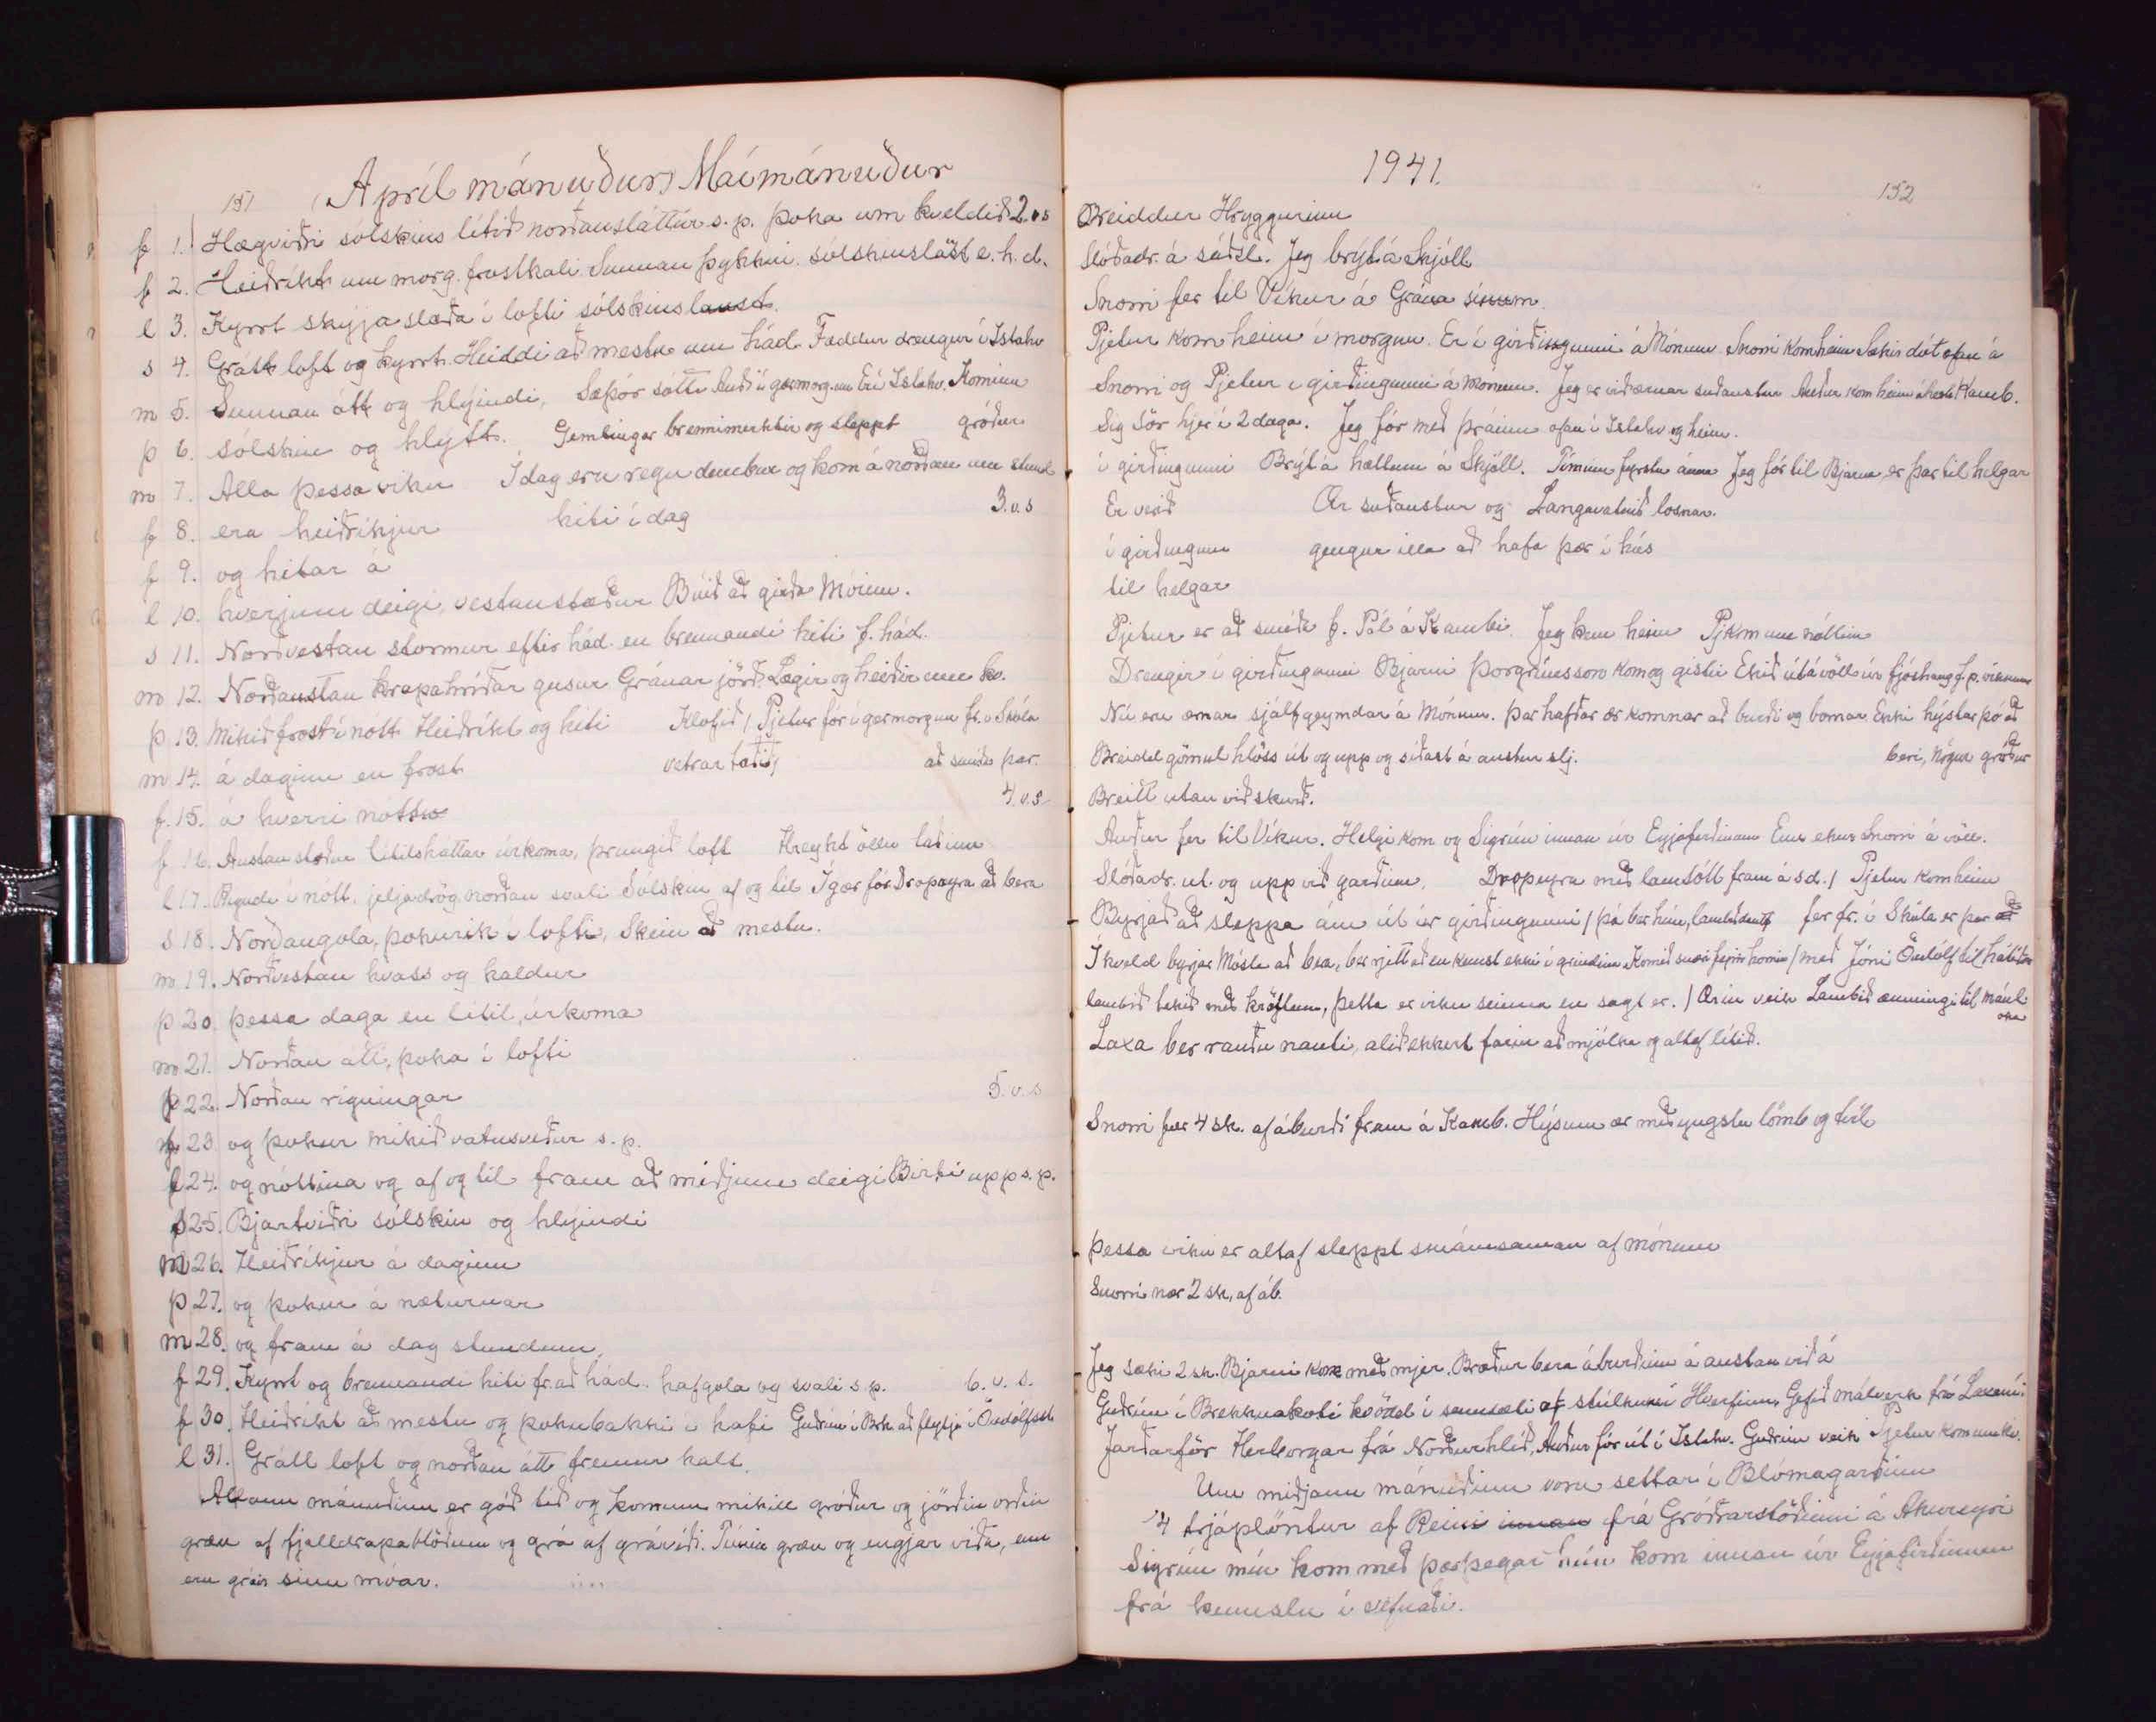 151 (Apríl mánuður) Maímánuður
f 1. Hægviðri sólskins lítið norðansláttur s.p. þoka um kveldið 2.v.s
f 2. Heiðríkt um morg. frostkali Sunnan þykkni sólskinslást e.h.d.
l 3. Kyrrt skýjaslæða í lofti sólskinslaust.
s 4. Grátt loft og kyrrt. Heiddi að mestu um hád. Fæddur drengur í Ístahv
m 5. Sunnan átt og hlýindi, Sæþór sótti Auði í gærmorg. í Ístahv. Kominn
þ 6. sólskin og hlýtt. Gemlingar brennimerktir og sleppt gróður
m 7. Alla þessa viku Í dag eru regn dembur og kom á norðan um stund
f 8. era heiðríkjur hiti í dag 3.v.s
f 9. og hitar á
l 10. hverjum deigi, vestanstæður Búið að girða Móinn.
s 11. Norðvestan stormur eftir hád. en brennandi hiti f. hád.
m 12. Norðaustan krapahríðar gusur Gránar jörð. Lægir og heiðir um kv.
þ 13. Mikið frost í nótt Heiðríkt og hiti Klofið / Pjetur fór í gærmorgun fr. í Skóla
m 14. á daginn en frost vetrartaðið, að smíða þar.
f. 15. á hverri nóttu 4.v.s
f 16. Austanstæður lítilsháttar úrkoma, þrungið loft Hreykt öllu taðinu
l 17. Rigndi í nótt, jeljadrög norðan svali Sólskin af og til Í gær fór Dropeyra að bera
s 18. Norðangola, þokurik í lofti, Skein að mestu.
m 19. Norðvestan hvass og kaldur
þ 20. þessa daga en lítil úrkoma
m 21. Norðan átt, þoka í lofti
f 22. Norðan rigningar 5.v.s
f 23 og þokur mikið vatnsveður s.p.
l 24. og nóttina og af og til fram að miðjum deigi Birti upp s.p.
s 25. Bjartviðri sólskin og hlýindi
m 26. Heiðríkjur á daginn
þ 27. og þokur á næturnar
m 28. og fram á dag stundum,
f 29. Kyrrt og brennandi hiti fr. að hád. hafgola og svali s.p. 6.v.s.
f 30. Heiðríkt að mestu og þokubakki í hafi Guðrún í Brk. að flytja í Öndólfsst.
l 31. Grátt loft og norðan átt fremur kalt.
Allann mánuðinn er góð tíð og kominn mikill gróður og jörðin orðin
græn af fjalldrapablöðum og grá af grávíði. Túnin græn og engjar víða, en
eru gráir sinu móar.
1941.
152
Breiddur Hryggurinn
Slóðadr. á suðsl. Jeg brýt á Skjöll
Snorri fer til Víkur á Grána sínum.
Pjetur kom heim í morgun. Er í girðingunni á Mónum Snorri kom heim Sækir dót ofan á
Snorri og Pjetur í girðingunni á mónum. Jeg er við ærnar suðaustur Auður kom heim Kamb.
Sig Sör hjer í 2 daga. Jeg fór með Þráinn ofan í Ístahv og heim.
í girðingunni Brýt á höllum á Skjöll. Tíminn fyrstu ánna Jeg fór til Bjarna, er þar til helgar
Er verið Ær suðaustur og Langavatnið losnar.
í girðingunni gengur illa að hafa þær í hús
til helgar
Pjetur er að smíða f. Pál á Kambi. Jeg kem heim Pj kom um nóttina
Drengir í girðingunni Bjarni Þorgrímsson kom og gistir Ekið út á völl úr fjóshaug f.p. vikuna
Nú eru ærnar sjálfgeymdar á Mónum. Þar hafðar ær komnar að burði og bornar Ekki hýstar þó að
Breidd gömul hlöss út og upp og síðast á austur slj. beri, nógur gróður
Breitt utan við skurð.
Auður fer til Víkur. Helgi kom og Sigrún innan úr Eyjafirðinum Enn ekur Snorri á völl.
Slóðadr. út og upp við garðinn. Dropeyra með lamsótt fram á sd. / Pjetur kom heim
Byrjað að sleppa ám út úr girðingunni / þá ber hún, lambið dautt fer fr. í Skóla er þar að
Í kveld byrjar Mósla að bera, ber rjett að en kemst ekki í grindina / með Jóni Öndólf til hálftíu
lambið tekið með kröftum, þetta er viku seinna en sagt er. / Ærin veik Lambið aumingi til mánl.
Laxa ber rauðu nauti, alið ekkert farin að mjólka og altaf lítið.
Snorri fær 4 sk. af áburði fram á Kamb. Hýsum ær með yngstu lömb og tvíl
þessa viku er altaf sleppt smámsaman af mónum
Snorri nær 2 sk. af áb.
Jeg sæki 2 sk. Bjarni kom með mjer. Bræður bera áburðinn á austan við á
Guðrún í Brekknakoti kvödd í samsæti af stúlkum í Hverfinu, Gefið málverk frá Laxamí
Jarðarför Herborgar frá Norðurhlíð, Auður fór út í Ístahv. Guðrún veik Pjetur kom um kv.
Um miðjann mánuðinn voru settar í Blómagarðinn
4 trjáplöntur af Reini innan frá Gróðrarstöðinni á Akureyri
Sigrún mín kom með þær þegar hún kom innan úr Eyjafirðinum
frá kennslu í vefnaði.